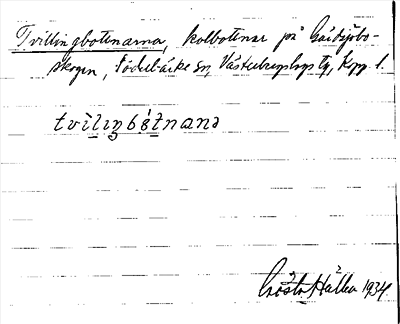 Tvillingbotnarna, kolbotnar på Gårdsjöbo-
skogen, Söderbärke sn, Västerbergslags tg, Kpg l.
tvìliŋbótnanə
Gösta Hallen 1934